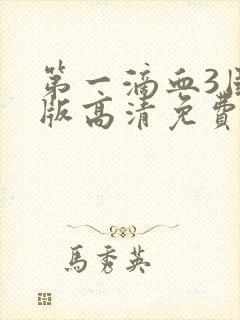 第一滴血3
版高清免費
馬秀英